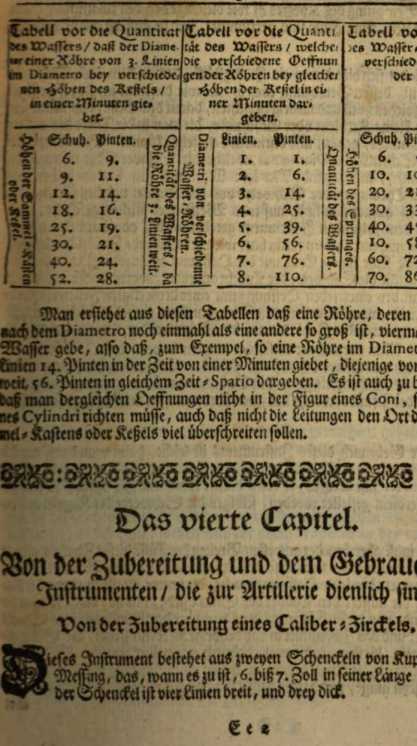 Tabell vor die Quantität
des Wassers / daß der Diame-
ter einer Röhre von 3. Linien
im Diametro bey verschiede-
nen Höhen des Kessels /
in einer Minuten gie-
bet.
Höhen der Sammel-Kasten
oder Kessel.
Schuh. Pinten.
6. 9.
9. 11.
12. 14.
18. 16.
25. 19.
30. 21.
40. 24.
52. 28.
Quantität des Wassers / da
die Röhre 3. Linien weit.
Tabell vor die Quanti-
tät des Wassers / welche
die verschiedene Oeffnun
gen der Röhren bey gleicher
Höhen der Kessel in ei-
ner Minuten dar-
geben.
Diametri von verschiedenne
Wasser-Röhren.
Linien. Pinten.
1. 1.
2. 6.
3. 14.
4. 25.
5. 39.
6. 56.
7. 76.
8. 110.
Quantität des Wassers.
Tabell vo
des Wasser
verschied
der
Höhen des Sprunges.
Schuh. Pi
6.
10. 10
20. 2
30. 33
40. 4
10. 58
60. 72
70. 86
Man ersiehet aus diesen Tabellen daß eine Röhre, deren
nach dem Diametro noch einmahl als eine andere so groß ist, vierm
Wasser gebe, also daß, zum Exempel, so eine Röhre im Diamet
Linien 14. Pinten in der Zeit von einer Minuten giebet, diejenige vo
weit, 56. Pinten in gleichem Zeit-Spatio dargeben. Es ist auch zu b
daß man dergleichen Oeffnungen nicht in der Figur eines Coni, s
nes Cylindri richten müsse, auch daß nicht die Leitungen den Ort d
mel-Kastens oder Keßels viel überschreiten sollen.
Das vierte Capitel.
Von der Zubereitung und dem Gebrauc
Instrumenten / die zur Artillerie dienlich sin
Von der Zubereitung eines Caliber-Zirckels.
Dieses Instrument bestehet aus zweyen Schenckeln von Kup
Messing, das, wann es zu ist, 6. biß 7. Zoll in seiner Länge
der Schenckel ist vier Linien breit, und drey dick.
Eee